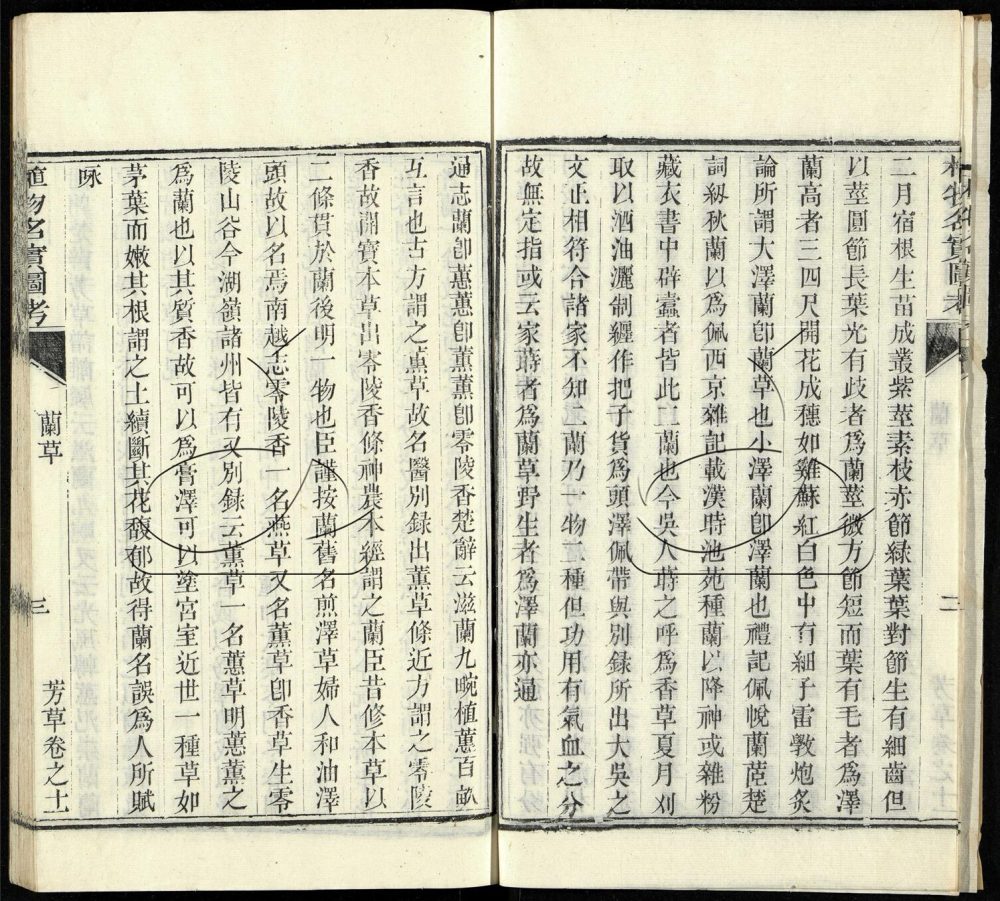 植物名實圖考
蘭草
二
芳草卷之十
二月宿根生苗成叢紫莖素枝赤節綠葉葉對節生有細齒但
以莖圓節長葉光有歧者爲蘭莖微方節短而葉有毛者爲澤
蘭高者三四尺開花成穗如雞蘇紅白色中有細子雷斆炮炙
論所謂大澤蘭卽蘭草也小澤蘭卽澤蘭也禮記佩帨蘭茝楚
詞紉秋蘭以爲佩西京雜記載漢時池苑種蘭以降神或雜粉
藏衣書中辟蠹者皆此二蘭也今吳人蒔之呼爲香草夏月刈
取以酒油灑制纏作把子貨爲頭澤佩帶與別錄所出大吳之
文正相符合諸家不知二蘭乃一物二種但功用有氣血之分
故無定指或云家蒔者爲蘭草野生者爲澤蘭亦通
通志蘭卽蕙蕙卽薰薰卽零陵香楚辭云滋蘭九畹植蕙百畝
互言也古方謂之薰草故名醫別錄出薰草條近方謂之零陵
香故開寶本草出零陵香條神農本經謂之蘭臣昔修本草以
二條貫於蘭後明一物也臣謹按蘭舊名煎澤草婦人和油澤
頭故以名焉南越志零陵香一名燕草又名薰草卽香草生零
陵山谷今湖嶺諸州皆有又別錄云薰草一名蕙草明蕙薰之
爲蘭也以其質香故可以爲膏澤可以塗宮室近世一種草如
茅葉而嫩其根謂之土續斷其花馥郁故得蘭名誤爲人所賦
咏
植物名實圖考
蘭草
三
芳草卷之十